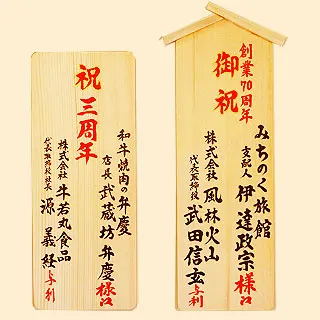 祝三周年
和牛焼肉の弁慶
店長武蔵坊弁慶様江
株式会社牛若丸食品
代表取締役社長源義経与利
創業70周年
御祝
みちのく旅館
支配人伊達政宗様江
株式会社風林火山
代表取締役武田信玄与利